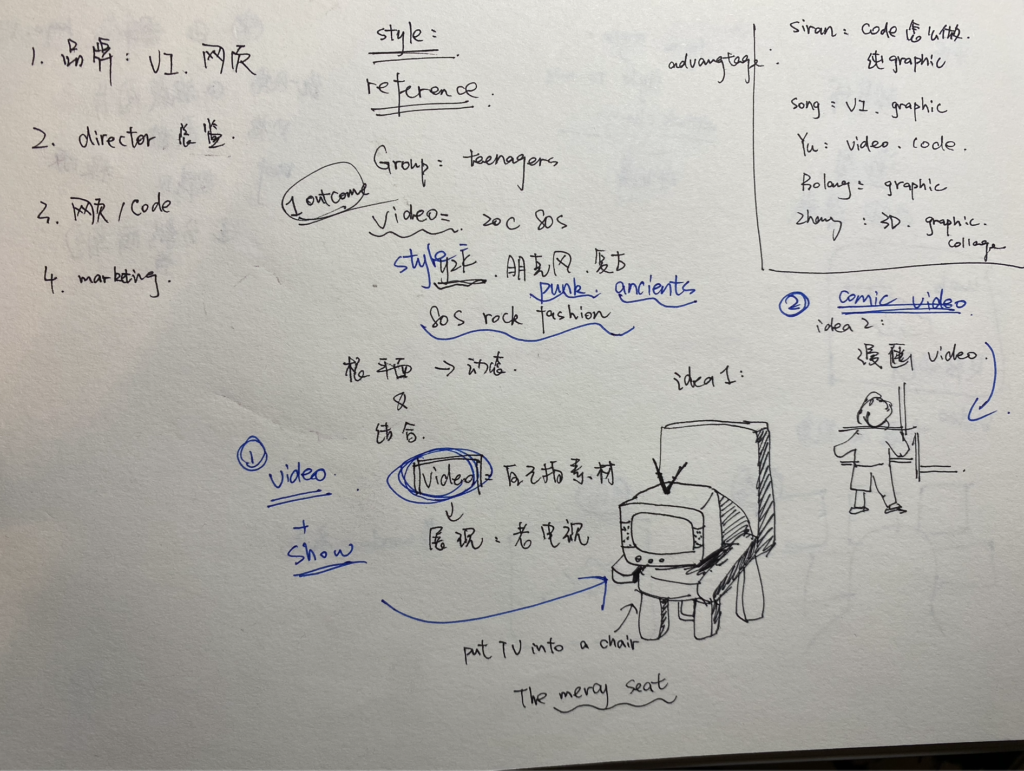 1. 品牌：VI、网页
2. director 总监.
3. 网页 / Code
4. marketing.
style:
reference.
Group: teenagers
1 outcome
video= 20c 80s
style y2k. 朋克风. 复古
punk. ancients
80s rock fashion
平面 → 动态.
&
结合.
① video.
+
show
video = 自己拍素材
↓
展现：老电视
idea 1:
put TV into a chair
The mercy seat
advangtage:
Siran: code 怎么做.
纯graphic
Song: VI. graphic
Yu: video. code.
Rolang: graphic
Zhang: 3D. graphic.
collage
② comic video
idea 2:
漫画 video.